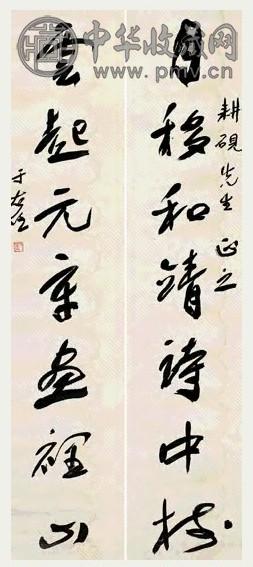 中华收藏网
www.pmw.cn
月移和靖詩中樹
耕硯先生 正之
雲起元章畫裡山
于右任